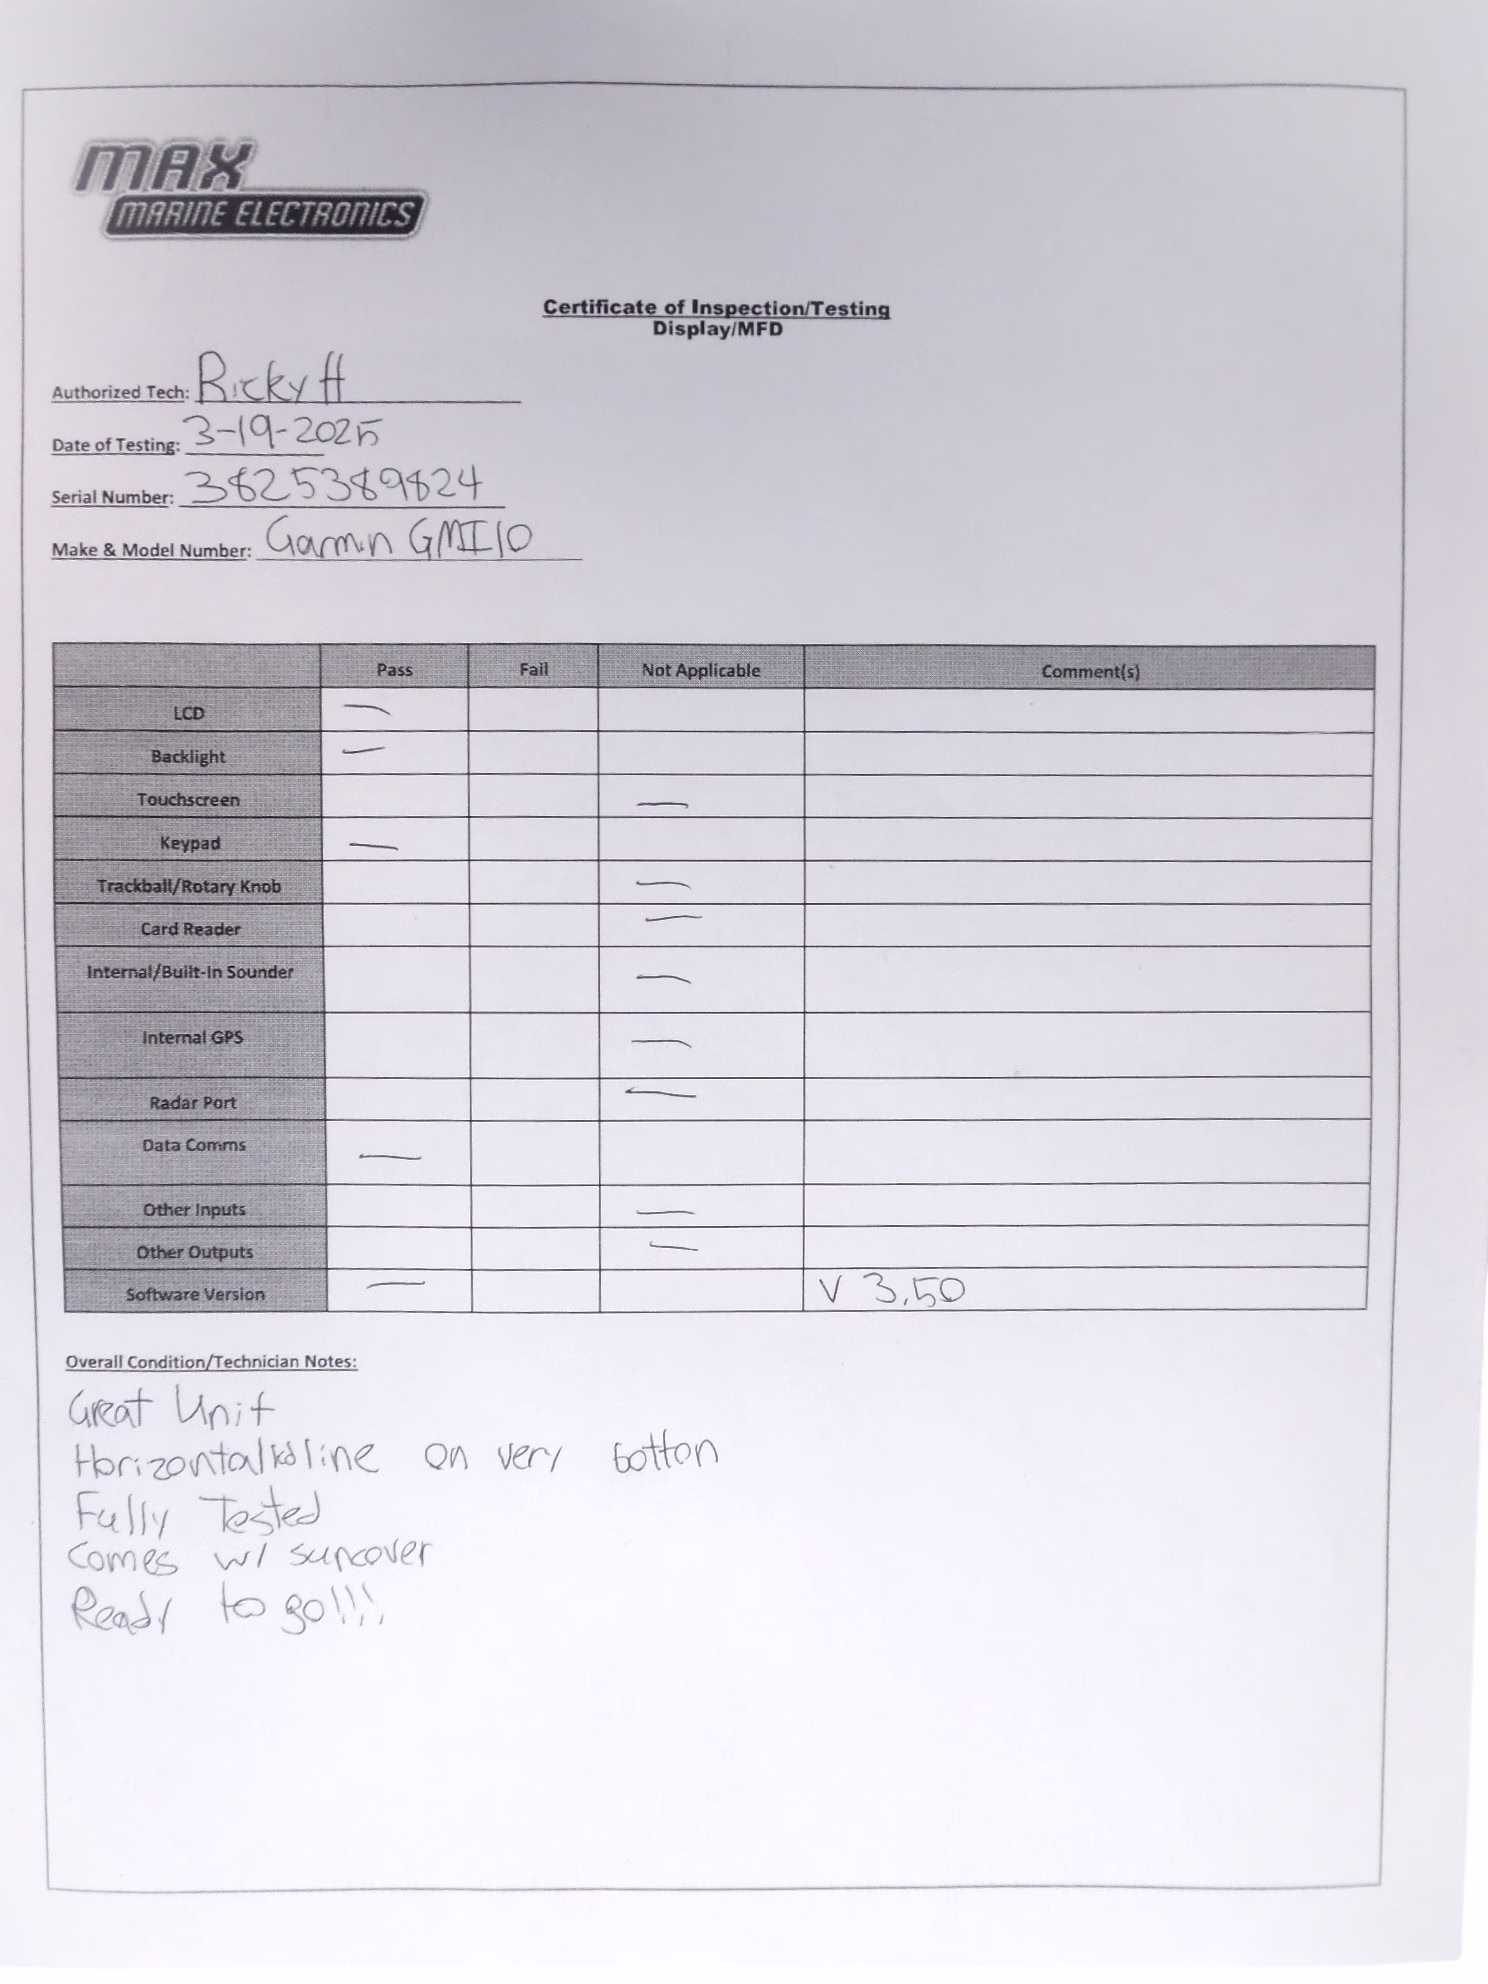 MAX
MARINE ELECTRONICS
Certificate of Inspection/Testing
Display/MFD
Authorized Tech: Ricky H
Date of Testing: 3-19-2025
Serial Number: 3825389824
Make & Model Number: Garmin GMI10
Pass Fail Not Applicable Comment(s)
LCD —
Backlight —
Touchscreen —
Keypad —
Trackball/Rotary Knob —
Card Reader —
Internal/Built-In Sounder —
Internal GPS —
Radar Port —
Data Comms —
Other Inputs —
Other Outputs —
Software Version — V 3.50
Overall Condition/Technician Notes:
Great Unit
Horizontal line on very botton
Fully Tested
Comes w/ suncover
Ready to go!!!!